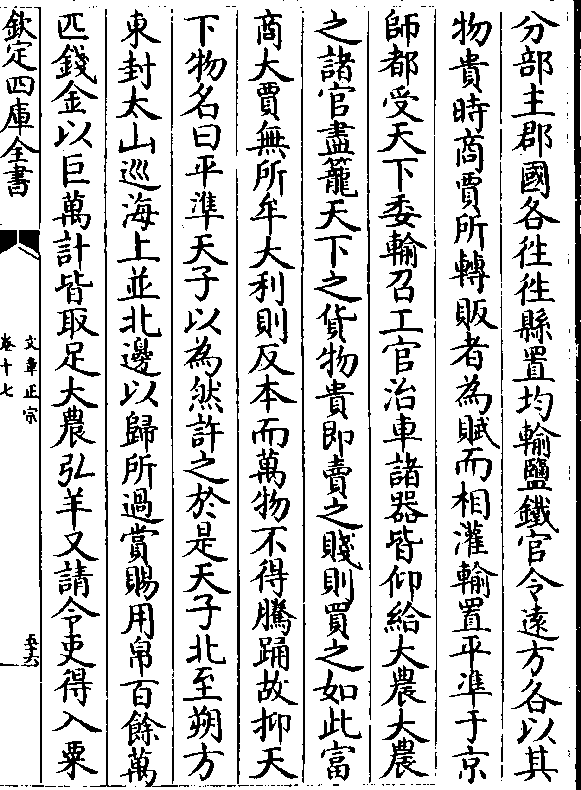 分部主郡國各徃徃縣置均輸鹽鐵官令逺方各以其
物貴時商賈所轉販者為賦而相灌輸置平凖于京
師都受天下委輸召工官治車諸器皆仰給大農大農
之諸官盡籠天下之貨物貴即賣之賤則買之如此富
商大賈無所牟大利則反本而萬物不得騰踊故抑天
下物名曰平準天子以為然許之於是天子北至朔方
東封太山巡海上並北邊以歸所過賞賜用帛百餘萬
匹錢金以巨萬計皆取足大農弘羊又請令吏得入粟
欽定四庫全書
文章正宗
卷十七
五十六